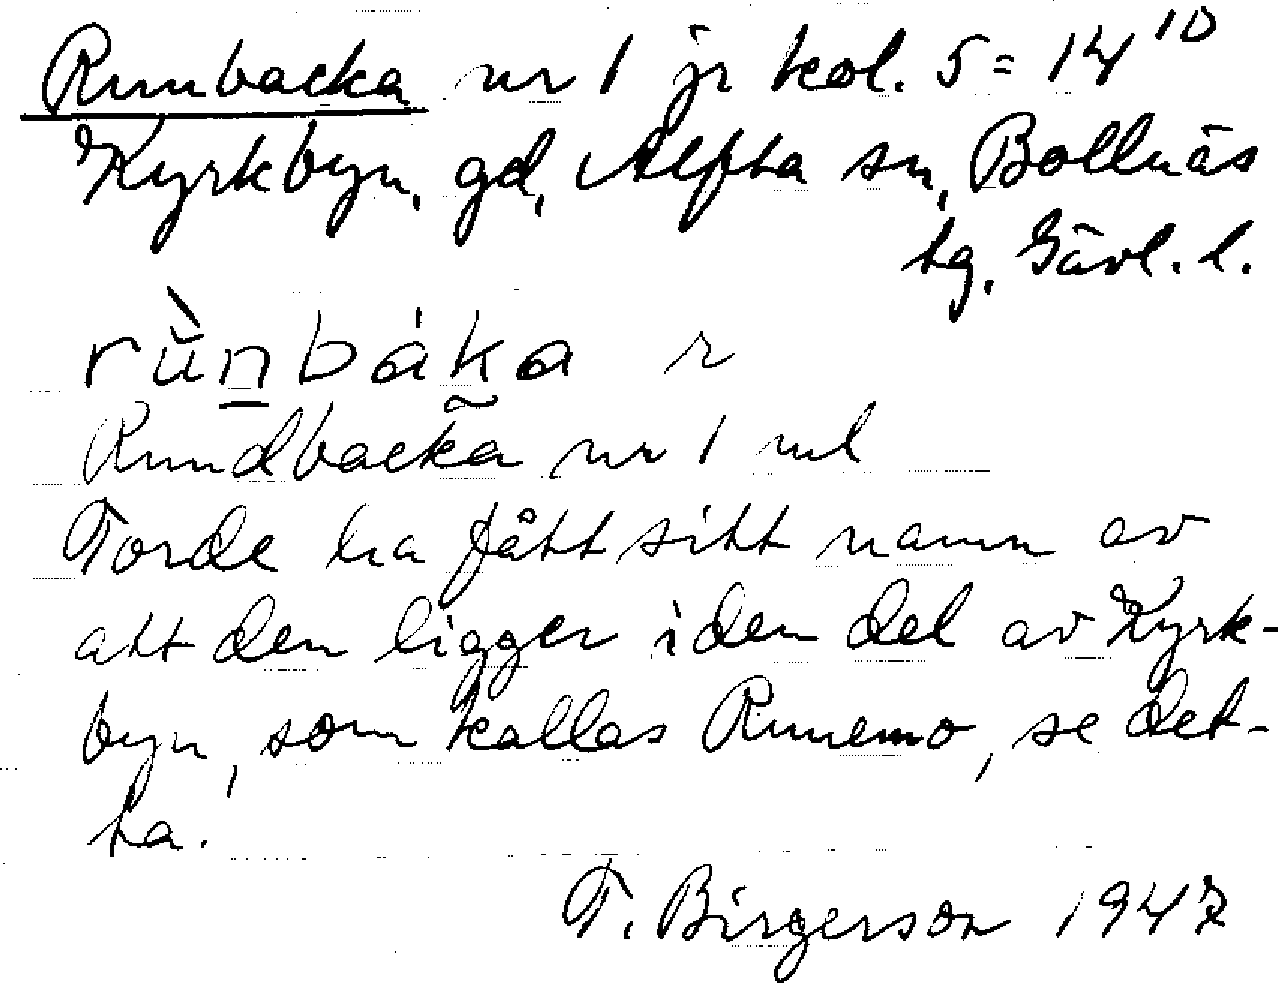 Runbacka nr 1 jr kol. 5 = 14¹⁰
Kyrkbyn, gd, Alfta sn, Bollnäs
tg. Gävl. l.
rùnbáka r
Rundbacka nr 1 ml
Torde ha fått sitt namn av
att den ligger i den del av Kyrk-
byn, som kallas Runemo, se det-
ta.
T. Birgerson 1947